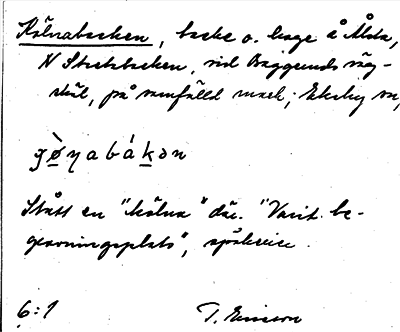 Kölnabacken, backe o. hage å Ålsta,
N Stretabacken, vid Baggeruds väg-
skäl, på samfälld mark; Ekeby sn,
gø̀ṉabákən
Stått en "kölna" där. "Varit be-
gravningsplats", spökerier.
6:1 T. Ericsson